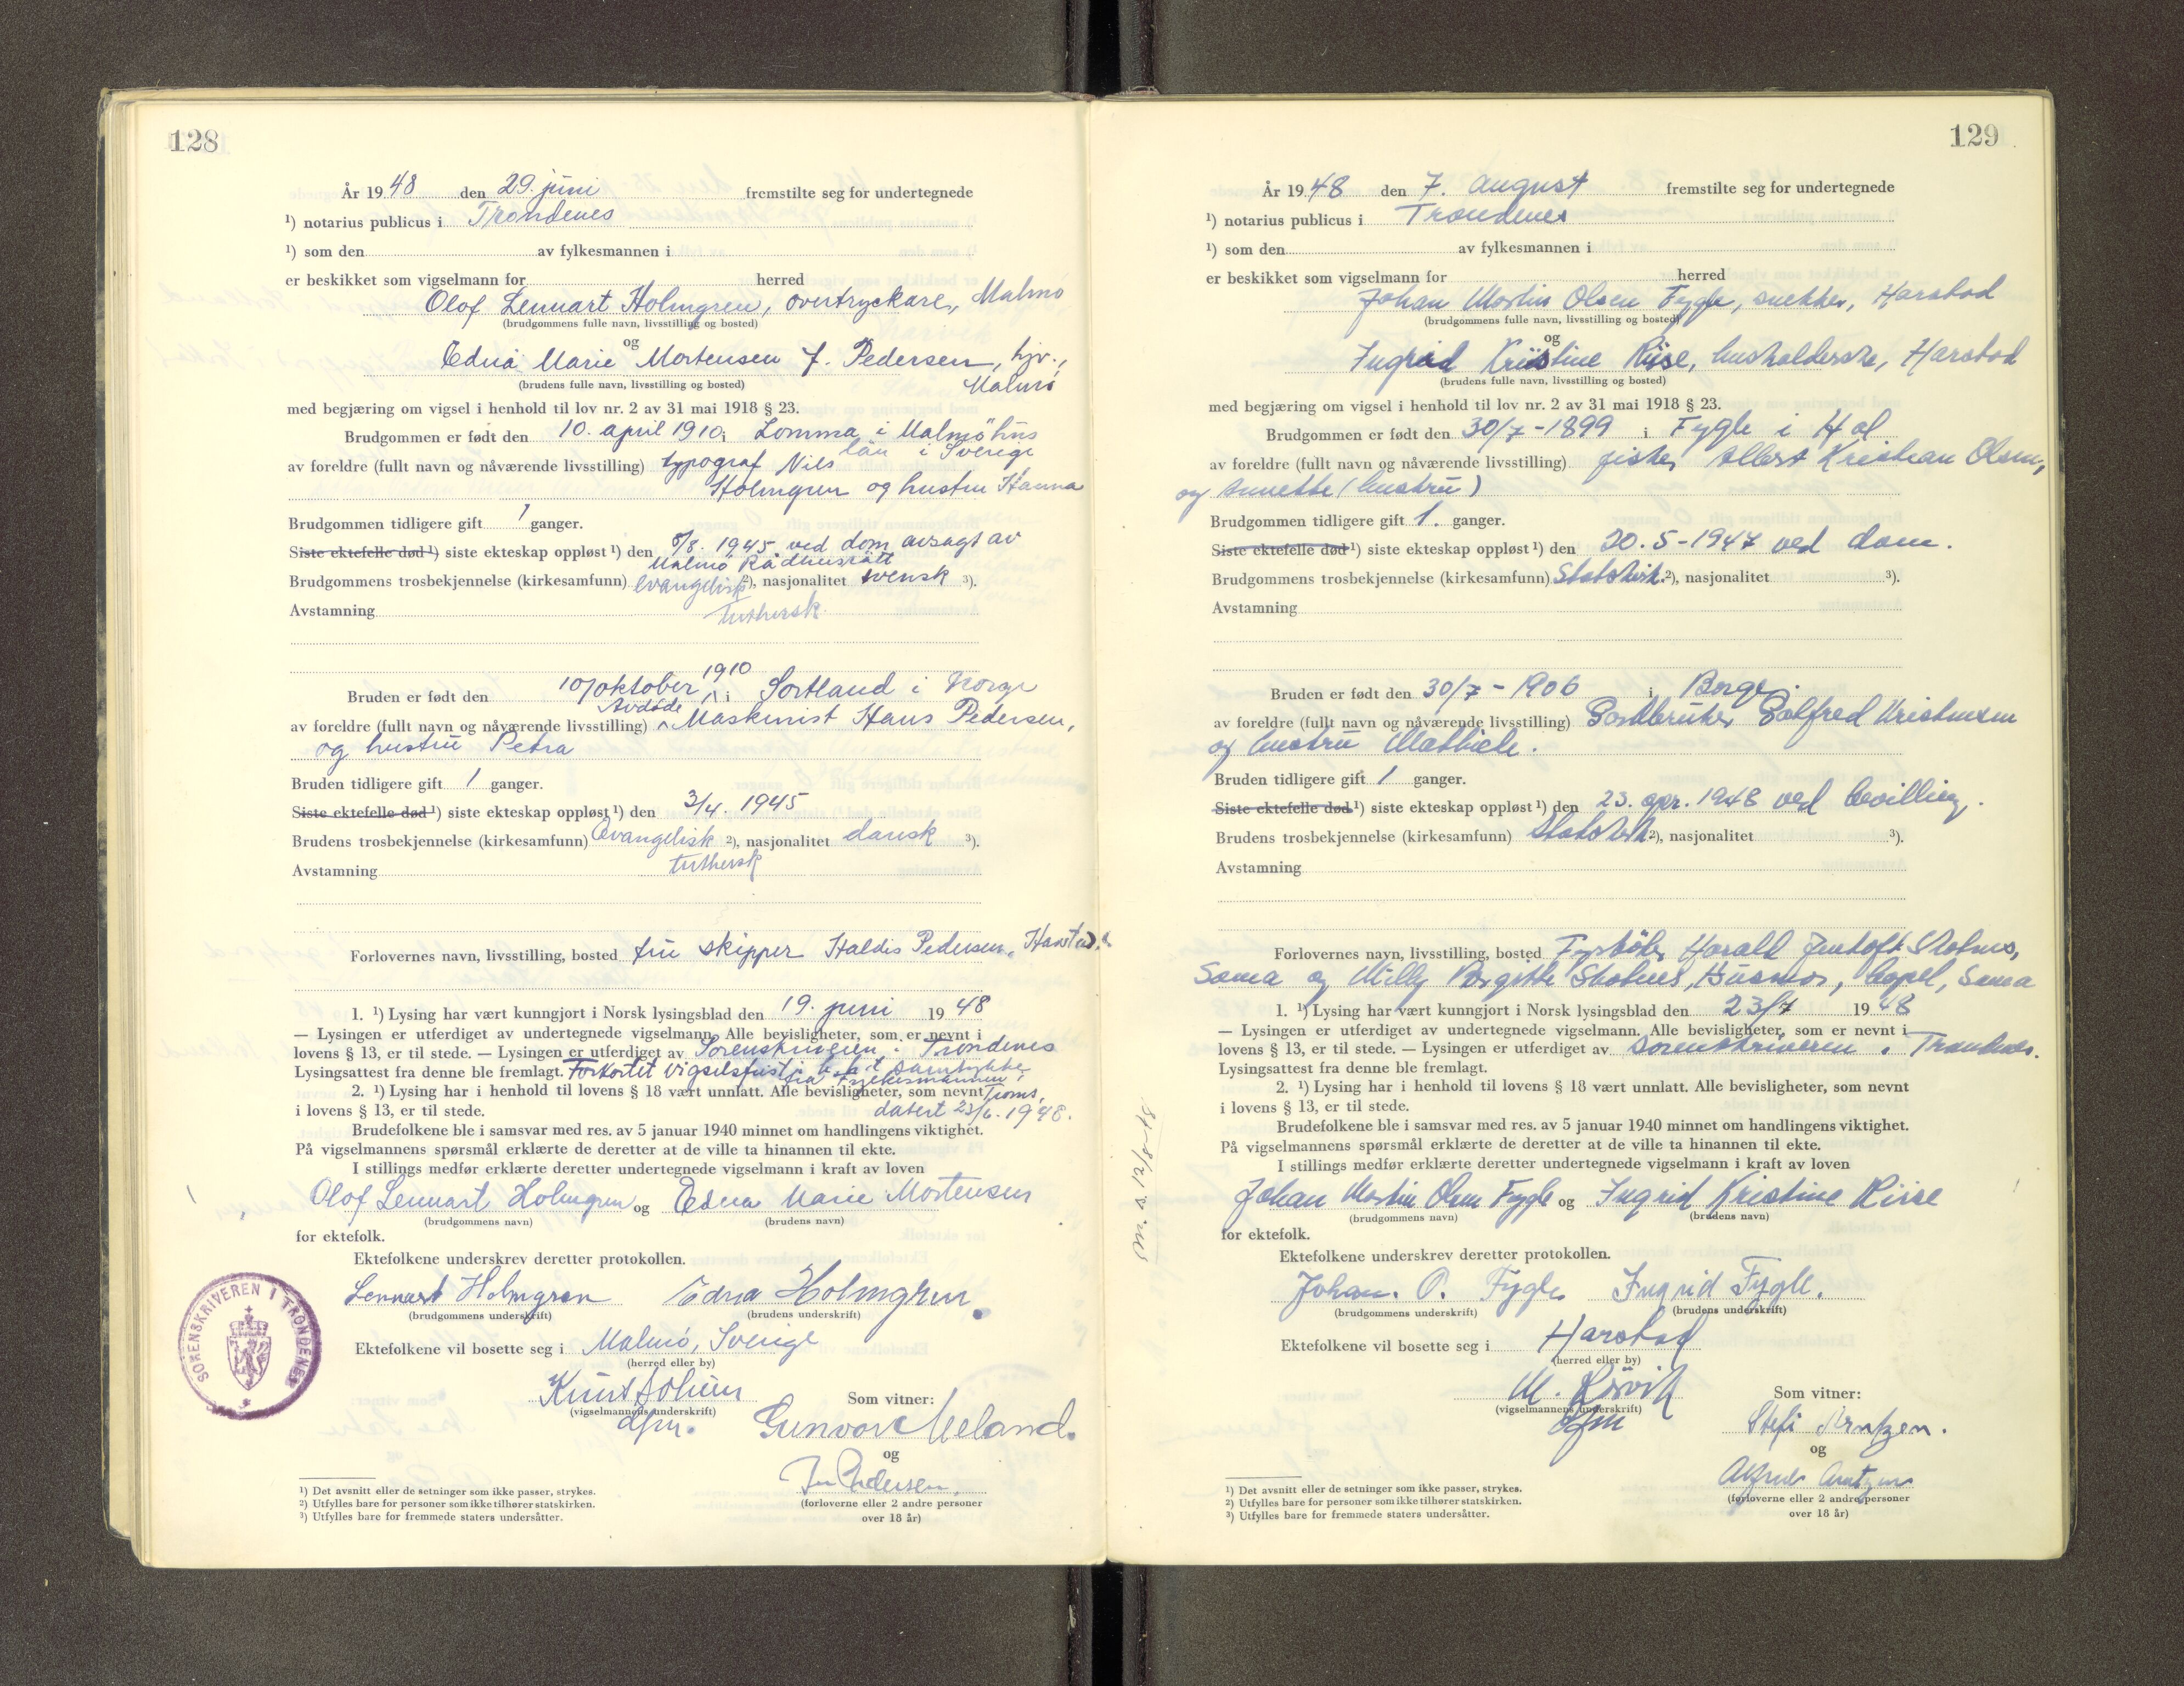 128
År 1948 den 29. juni fremstilte seg for undertegnede
¹) notarius publicus i Trondenes
¹) som den av fylkesmannen i
er beskikket som vigselmann for herred
Olof Lennart Holmgren, overtryckare, Malmö
(brudgommens fulle navn, livsstilling og bosted)
og
Edna Marie Mortensen f. Pedersen, hjv.,
(brudens fulle navn, livsstilling og bosted) Malmö
med begjæring om vigsel i henhold til lov nr. 2 av 31 mai 1918 § 23.
Brudgommen er født den 10. april 1910 i Lomma i Malmöhus
län i Sverige
av foreldre (fullt navn og nåværende livsstilling) typograf Nils
Holmgren og hustru Hanna
Brudgommen tidligere gift 1 ganger.
Siste ektefelle død ¹) siste ekteskap oppløst ¹) den 8/8. 1945. ved dom avsagt av
Malmö Rådhusrätt
Brudgommens trosbekjennelse (kirkesamfunn) evangelisk ²), nasjonalitet svensk ³).
Avstamning luthersk
1910
Bruden er født den 10/oktober i Sortland i Norge
Avdøde
av foreldre (fullt navn og nåværende livsstilling) Maskinist Hans Pedersen,
og hustru Petra
Bruden tidligere gift 1 ganger.
Siste ektefelle død ¹) siste ekteskap oppløst ¹) den 3/4. 1945
Brudens trosbekjennelse (kirkesamfunn) Evangelisk ²), nasjonalitet dansk ³).
Avstamning luthersk
Forlovernes navn, livsstilling, bosted fru skipper Haldis Pedersen, Harstad.
1. ¹) Lysing har vært kunngjort i Norsk lysingsblad den 19. juni 1948
— Lysingen er utferdiget av undertegnede vigselmann. Alle bevisligheter, som er nevnt i
lovens § 13, er til stede. — Lysingen er utferdiget av Sorenskriveren i Trondenes
Lysingsattest fra denne ble fremlagt. Forkortet vigselsfrist samtykke
fra Fylkesmannen i
2. ¹) Lysing har i henhold til lovens § 18 vært unnlatt. Alle bevisligheter, som er nevnt Troms,
i lovens § 13, er til stede. datert 23/6. 1948.
Brudefolkene ble i samsvar med res. av 5 januar 1940 minnet om handlingens viktighet.
På vigselmannens spørsmål erklærte de deretter at de ville ta hinannen til ekte.
I stillings medfør erklærte deretter undertegnede vigselmann i kraft av loven
Olof Lennart Holmgren og Edna Marie Mortensen
(brudgommens navn) (brudens navn)
for ektefolk.
Ektefolkene underskrev deretter protokollen.
Lennart Holmgren Edna Holmgren.
(brudgommens underskrift) (brudens underskrift)
SORENSKRIVEREN I TRONDENES
Ektefolkene vil bosette seg i Malmö, Sverige
(herred eller by)
Knut Som vitner:
(vigselmannens underskrift)
dfm. Gunvor Meland.
og
Pedersen.
(forloverne eller 2 andre personer
over 18 år)
¹) Det avsnitt eller de setninger som ikke passer, strykes.
²) Utfylles bare for personer som ikke tilhører statskirken.
³) Utfylles bare for fremmede staters undersåtter.
129
År 1948 den 7. august fremstilte seg for undertegnede
¹) notarius publicus i Trondenes
¹) som den av fylkesmannen i
er beskikket som vigselmann for herred
Johan Martin Olsen Fygle, snekker, Harstad
(brudgommens fulle navn, livsstilling og bosted)
og
Ingrid Kristine Riise, husholderske, Harstad
(brudens fulle navn, livsstilling og bosted)
med begjæring om vigsel i henhold til lov nr. 2 av 31 mai 1918 § 23.
Brudgommen er født den 30/7-1899 i Fygle i Hol
av foreldre (fullt navn og nåværende livsstilling) fisker Albert Kristian Olsen,
og Annette (hustru)
Brudgommen tidligere gift 1. ganger.
Siste ektefelle død ¹) siste ekteskap oppløst ¹) den 20.5-1947 ved dom.
Brudgommens trosbekjennelse (kirkesamfunn) Statskirk. ²), nasjonalitet ³).
Avstamning
Bruden er født den 30/7-1906 i Borge.
av foreldre (fullt navn og nåværende livsstilling) Gårdbruker Kristensen
og hustru Mathilde.
Bruden tidligere gift 1 ganger.
Siste ektefelle død ¹) siste ekteskap oppløst ¹) den 23. apr. 1948 ved bevilling.
Brudens trosbekjennelse (kirkesamfunn) Statskirk ²), nasjonalitet ³).
Avstamning
Forlovernes navn, livsstilling, bosted Fyrbøter Harald Jentoft
Sama og Milly Bergitte Husmor, Sama
1. ¹) Lysing har vært kunngjort i Norsk lysingsblad den 23/7 1948
— Lysingen er utferdiget av undertegnede vigselmann. Alle bevisligheter, som er nevnt i
lovens § 13, er til stede. — Lysingen er utferdiget av sorenskriveren i Trondenes.
Lysingsattest fra denne ble fremlagt.
2. ¹) Lysing har i henhold til lovens § 18 vært unnlatt. Alle bevisligheter, som er nevnt
i lovens § 13, er til stede.
Brudefolkene ble i samsvar med res. av 5 januar 1940 minnet om handlingens viktighet.
På vigselmannens spørsmål erklærte de deretter at de ville ta hinannen til ekte.
I stillings medfør erklærte deretter undertegnede vigselmann i kraft av loven
Johan Martin Olsen Fygle og Ingrid Kristine Riise
(brudgommens navn) (brudens navn)
for ektefolk.
Ektefolkene underskrev deretter protokollen.
Johan. O. Fygle Ingrid Fygle.
(brudgommens underskrift) (brudens underskrift)
m. s. 12/8-48
Ektefolkene vil bosette seg i Harstad
(herred eller by)
M. Rørvik Som vitner:
(vigselmannens underskrift)
dfm Arntzen.
og
Arntzen
(forloverne eller 2 andre personer
over 18 år)
¹) Det avsnitt eller de setninger som ikke passer, strykes.
²) Utfylles bare for personer som ikke tilhører statskirken.
³) Utfylles bare for fremmede staters undersåtter.